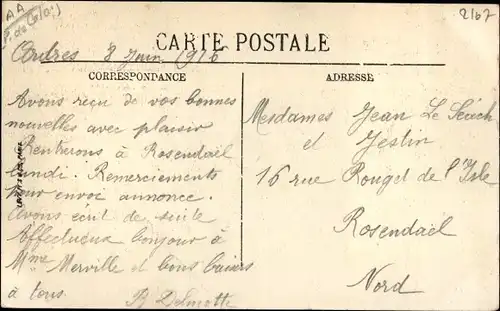 AA
(P. de Clais)
2167
CARTE POSTALE
Ardres 8 Juin 1916
CORRESPONDANCE
ADRESSE
Avons reçu de vos bonnes
nouvelles avec plaisir
Rentrerons à Rosendaël
lundi. Remerciements
pour envoi annonce.
Avons écrit de suite
Affectueux bonjour à
Mme Merville et bons baisers
à tous.
R Delmotte
Mesdames Jean Le Séach
et Jestin
16 rue Rouget de l'Isle
Rosendaël
Nord